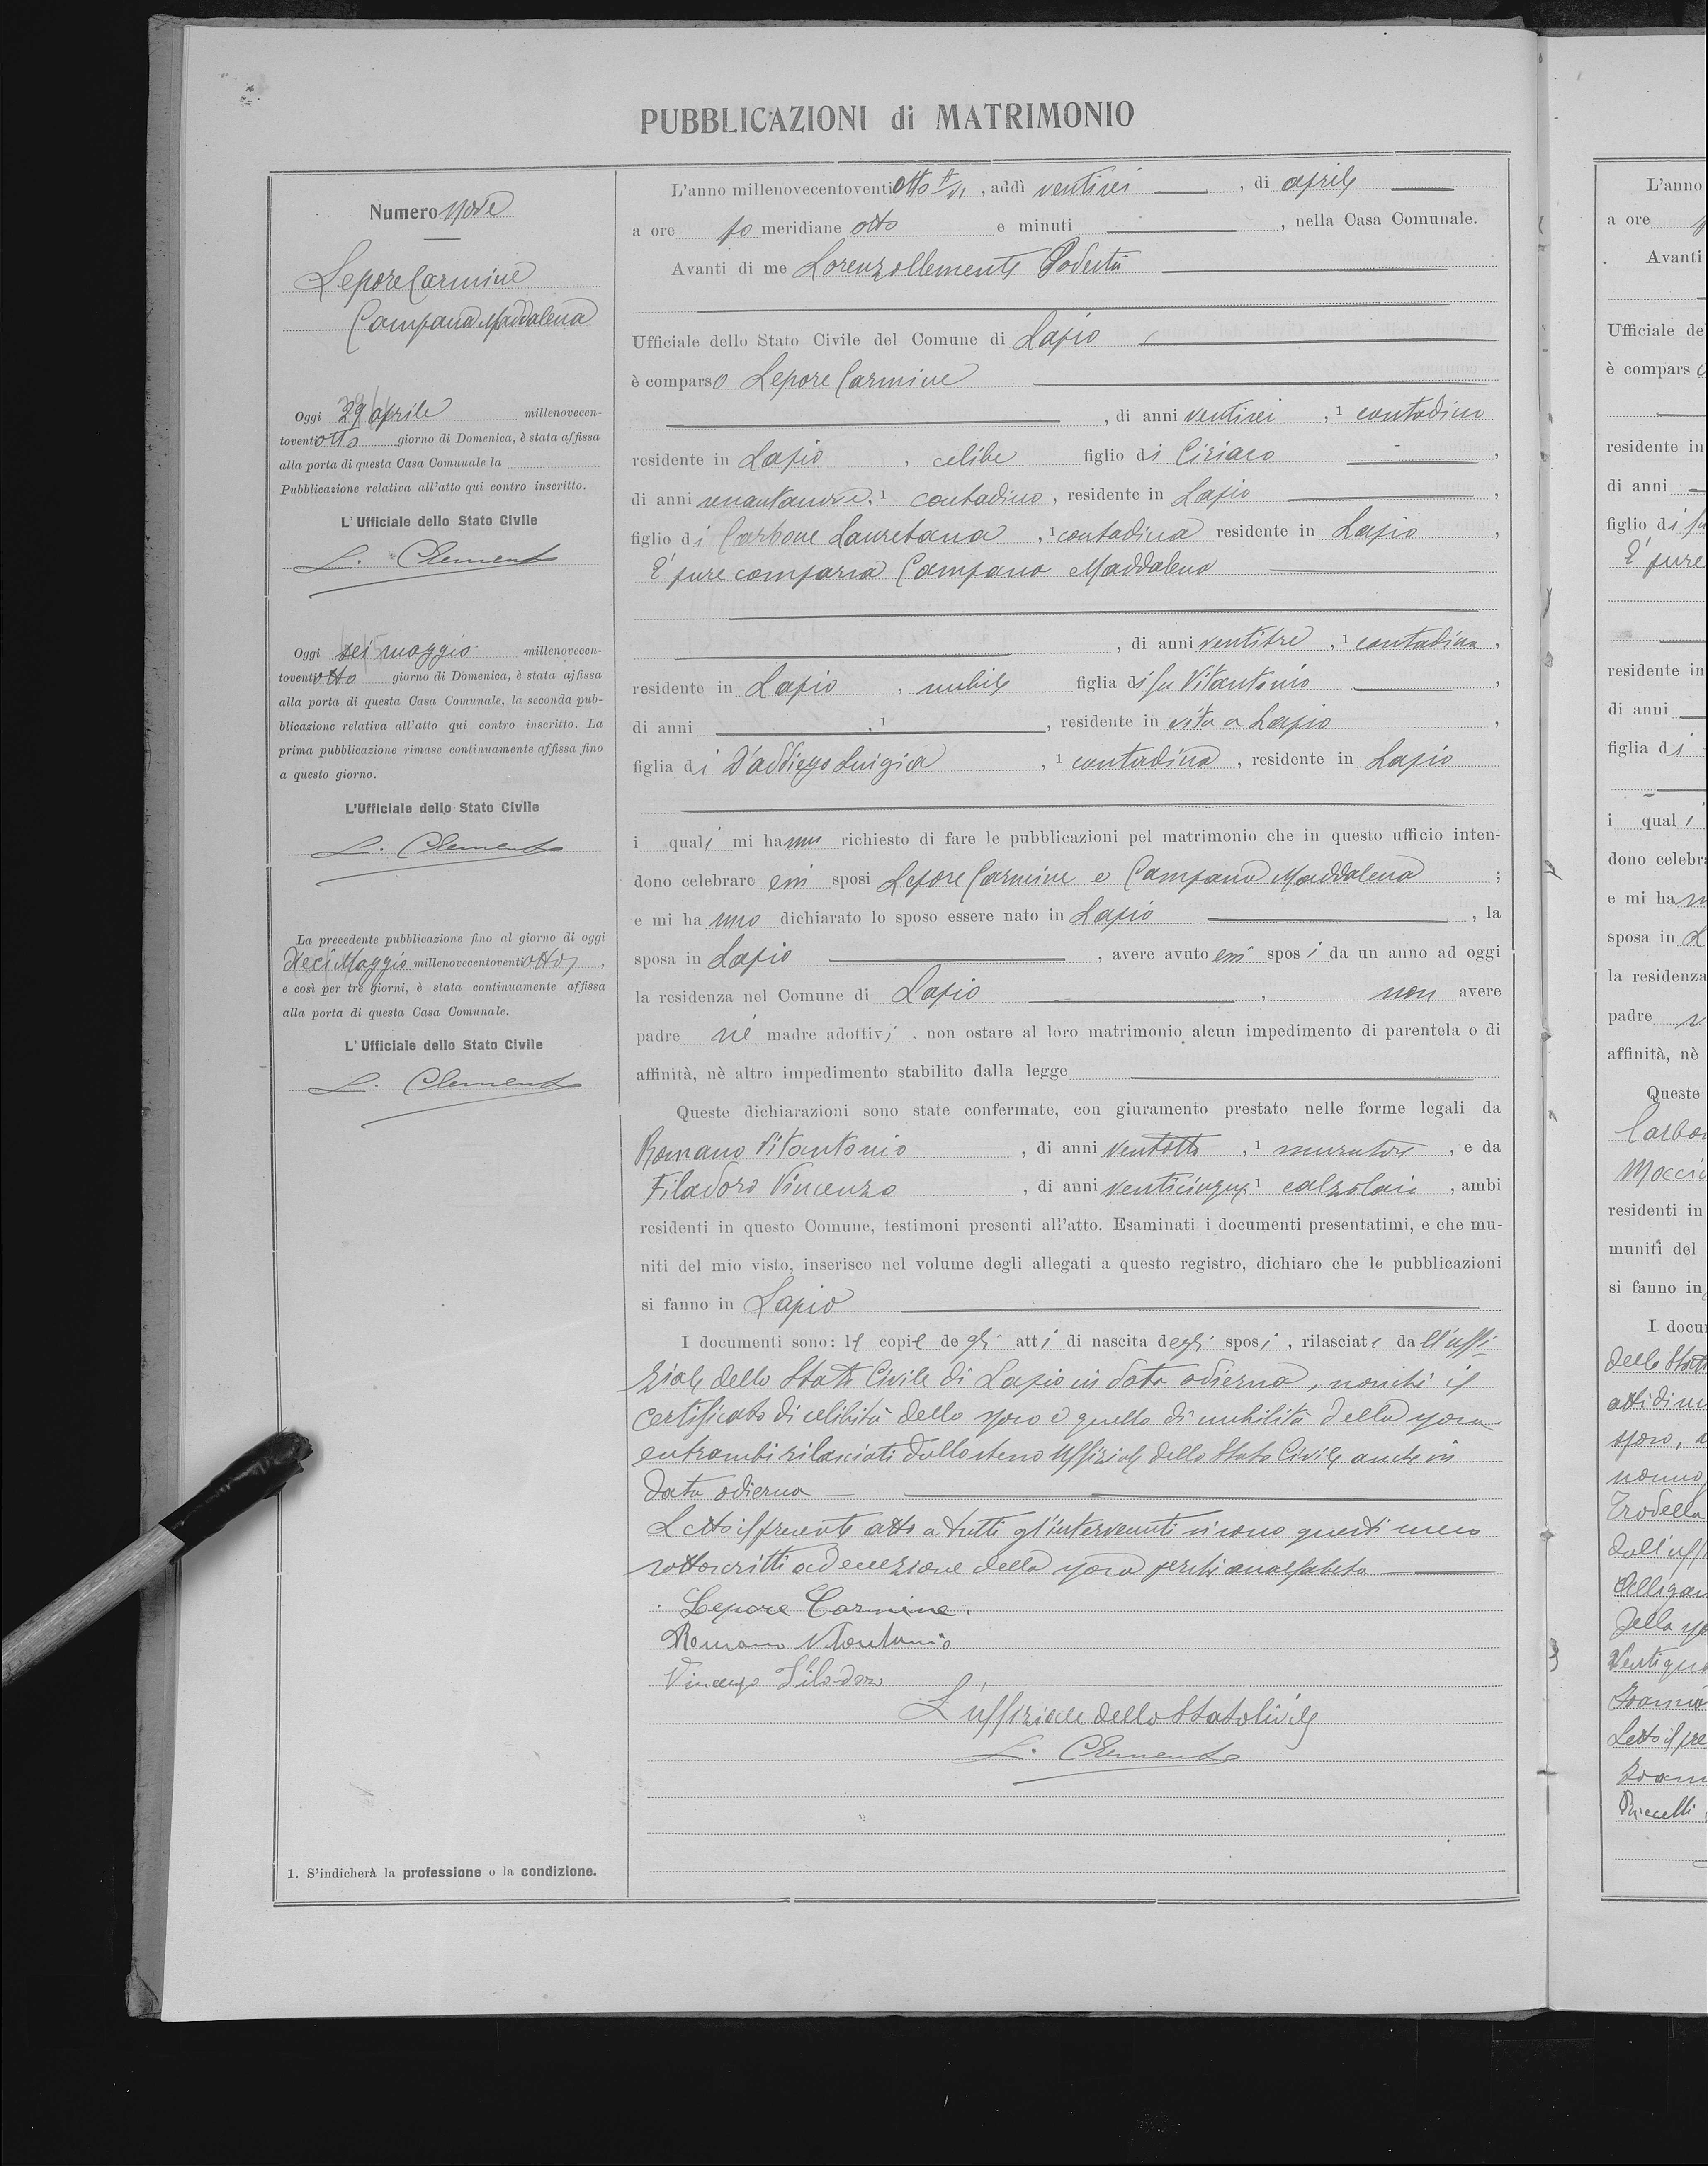 PUBBLICAZIONI di MATRIMONIO
Numero nove
Lepore Carmine
Campana Maddalena
Oggi 29 aprile millenovecen-
toventotto giorno di Domenica, è stata affissa
alla porta di questa Casa Comunale la
Pubblicazione relativa all'atto qui contro inscritto.
L'Ufficiale dello Stato Civile
L. Clemente
Oggi sei maggio millenovecen-
toventotto giorno di Domenica, è stata affissa
alla porta di questa Casa Comunale, la seconda pub-
blicazione relativa all'atto qui contro inscritto. La
prima pubblicazione rimase continuamente affissa fino
a questo giorno.
L'Ufficiale dello Stato Civile
L. Clemente
La precedente pubblicazione fino al giorno di oggi
dieci Maggio millenovecentoventotto,
e così per tre giorni, è stata continuamente affissa
alla porta di questa Casa Comunale.
L'Ufficiale dello Stato Civile
L. Clemente
1. S'indicherà la professione o la condizione.
L'anno millenovecentoventiotto VI, addì ventisei, di aprile
a ore po meridiane otto e minuti, nella Casa Comunale.
Avanti di me Lorenzo Clemente Podestà
Ufficiale dello Stato Civile del Comune di Lapio
è comparso Lepore Carmine
, di anni ventisei, 1 contadino
residente in Lapio, celibe figlio di Ciriaco,
di anni, 1 contadino, residente in Lapio,
figlio di Carbone Lauretana, 1 contadina residente in Lapio,
E' pure comparsa Campana Maddalena
, di anni ventitre, 1 contadina,
residente in Lapio, nubile figlia di fu Vitantonio,
di anni, 1, residente in vita a Lapio,
figlia di D'addiego Luigia, 1 contadina, residente in Lapio
i quali mi hanno richiesto di fare le pubblicazioni pel matrimonio che in questo ufficio inten-
dono celebrare essi sposi Lepore Carmine e Campana Maddalena;
e mi hanno dichiarato lo sposo essere nato in Lapio, la
sposa in Lapio, avere avuto essi sposi da un anno ad oggi
la residenza nel Comune di Lapio, non avere
padre nè madre adottivi, non ostare al loro matrimonio alcun impedimento di parentela o di
affinità, nè altro impedimento stabilito dalla legge
Queste dichiarazioni sono state confermate, con giuramento prestato nelle forme legali da
Romano Vitantonio, di anni ventotto, 1 muratore, e da
Filadoro Vincenzo, di anni venticinque 1 calzolaio, ambi
residenti in questo Comune, testimoni presenti all'atto. Esaminati i documenti presentatimi, e che mu-
niti del mio visto, inserisco nel volume degli allegati a questo registro, dichiaro che le pubblicazioni
si fanno in Lapio
I documenti sono: le copie degli atti di nascita degli sposi, rilasciate dall'uffi-
ziale dello Stato Civile di Lapio in data odierna, nonchè il
certificato di celibità dello sposo e quello di nubilità della sposa
entrambi rilasciati dallo stesso Uffiziale dello Stato Civile anche in
data odierna
Letto il presente atto a tutti gl'intervenuti si sono questi meco
sottoscritti ad eccezione della sposa perchè analfabeta
Lepore Carmine.
Romano Vitantonio
Vincenzo Filadoro
L'uffiziale dello Stato Civile
L. Clemente
L'anno
a ore
Avanti
Ufficiale de
è compars
residente in
di anni
figlio di fu
E' pure
residente in
di anni
figlia di
i quali
dono celebra
e mi ha
sposa in L
la residenza
padre
affinità, nè
Queste
Carbon
residenti in
muniti del
si fanno in
I docum
dello Stato
atti di
sposo,
nonno
dall'uff
della sp
Letto il pre